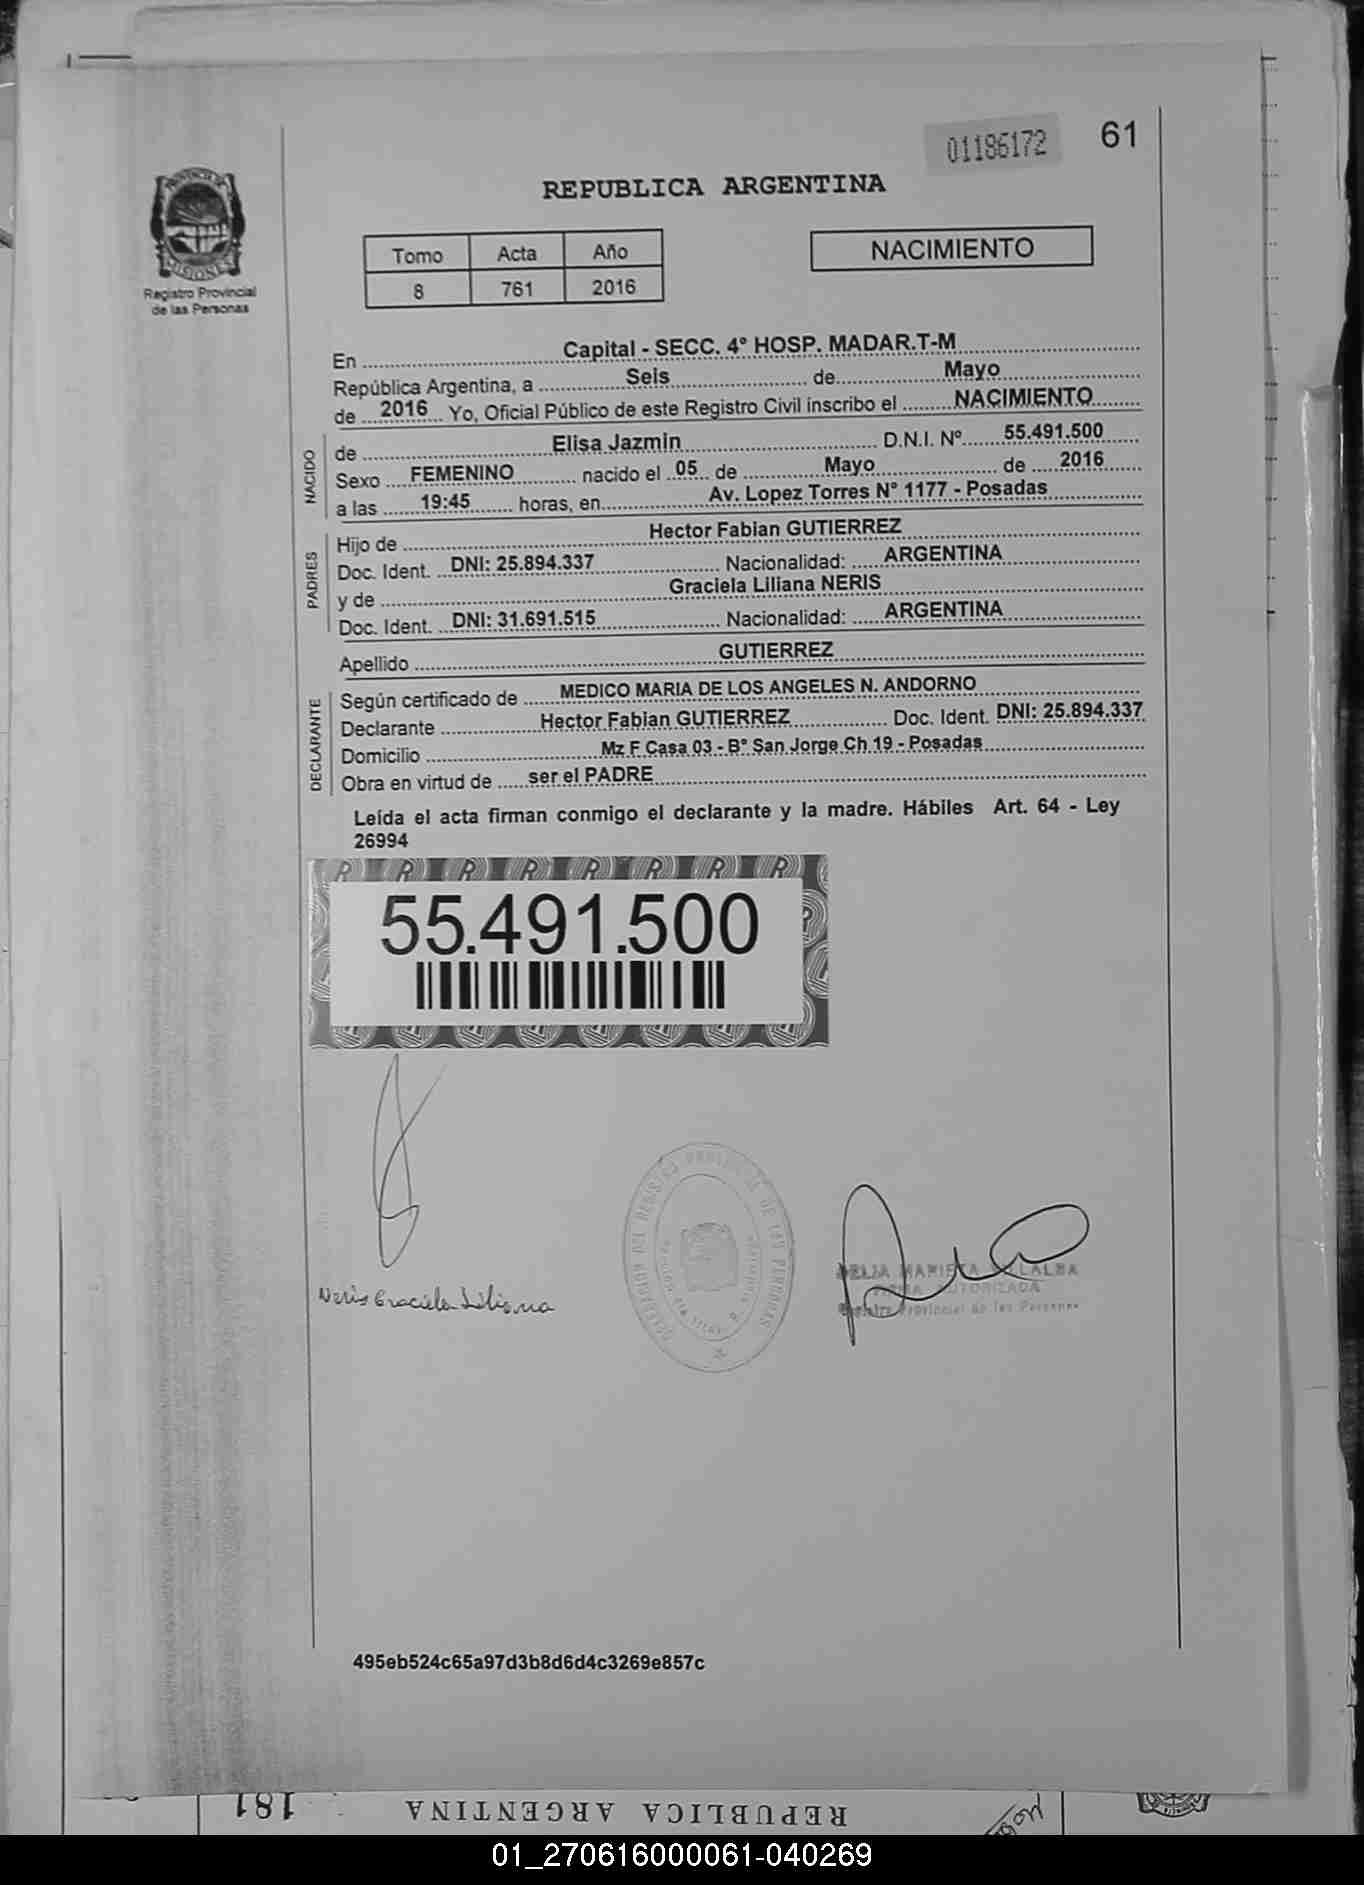 01186172 61
REPUBLICA ARGENTINA
PROVINCIA DE
MISIONES
Registro Provincial
de las Personas
Tomo Acta Año
8 761 2016
NACIMIENTO
En Capital - SECC. 4° HOSP. MADAR.T-M
República Argentina, a Seis de Mayo
de 2016 Yo, Oficial Público de este Registro Civil inscribo el NACIMIENTO
NACIDO
de Elisa Jazmin D.N.I. Nº 55.491.500
Sexo FEMENINO nacido el 05 de Mayo de 2016
a las 19:45 horas, en Av. Lopez Torres N° 1177 - Posadas
PADRES
Hijo de Hector Fabian GUTIERREZ
Doc. Ident. DNI: 25.894.337 Nacionalidad: ARGENTINA
y de Graciela Liliana NERIS
Doc. Ident. DNI: 31.691.515 Nacionalidad: ARGENTINA
Apellido GUTIERREZ
DECLARANTE
Según certificado de MEDICO MARIA DE LOS ANGELES N. ANDORNO
Declarante Hector Fabian GUTIERREZ Doc. Ident. DNI: 25.894.337
Domicilio Mz F Casa 03 - B° San Jorge Ch 19 - Posadas
Obra en virtud de ser el PADRE
Leída el acta firman conmigo el declarante y la madre. Hábiles Art. 64 - Ley
26994
55.491.500
Neris Graciela Liliana
DELIA MARIETA VILLALBA
FIRMA AUTORIZADA
Registro Provincial de las Personas
495eb524c65a97d3b8d6d4c3269e857c
181 REPUBLICA ARGENTINA
01_270616000061-040269